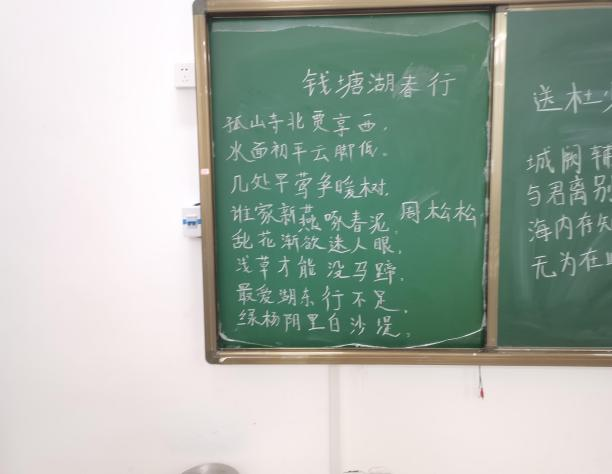 钱塘湖春行
孤山寺北贾享西，
水面初平云脚低。
几处早莺争暖树，
谁家新燕啄春泥，
周松松
乱花渐欲迷人眼，
浅草才能没马蹄，
最爱湖东行不足，
绿杨阴里白沙堤。
送杜少
城阙辅
与君离别
海内存知
无为在